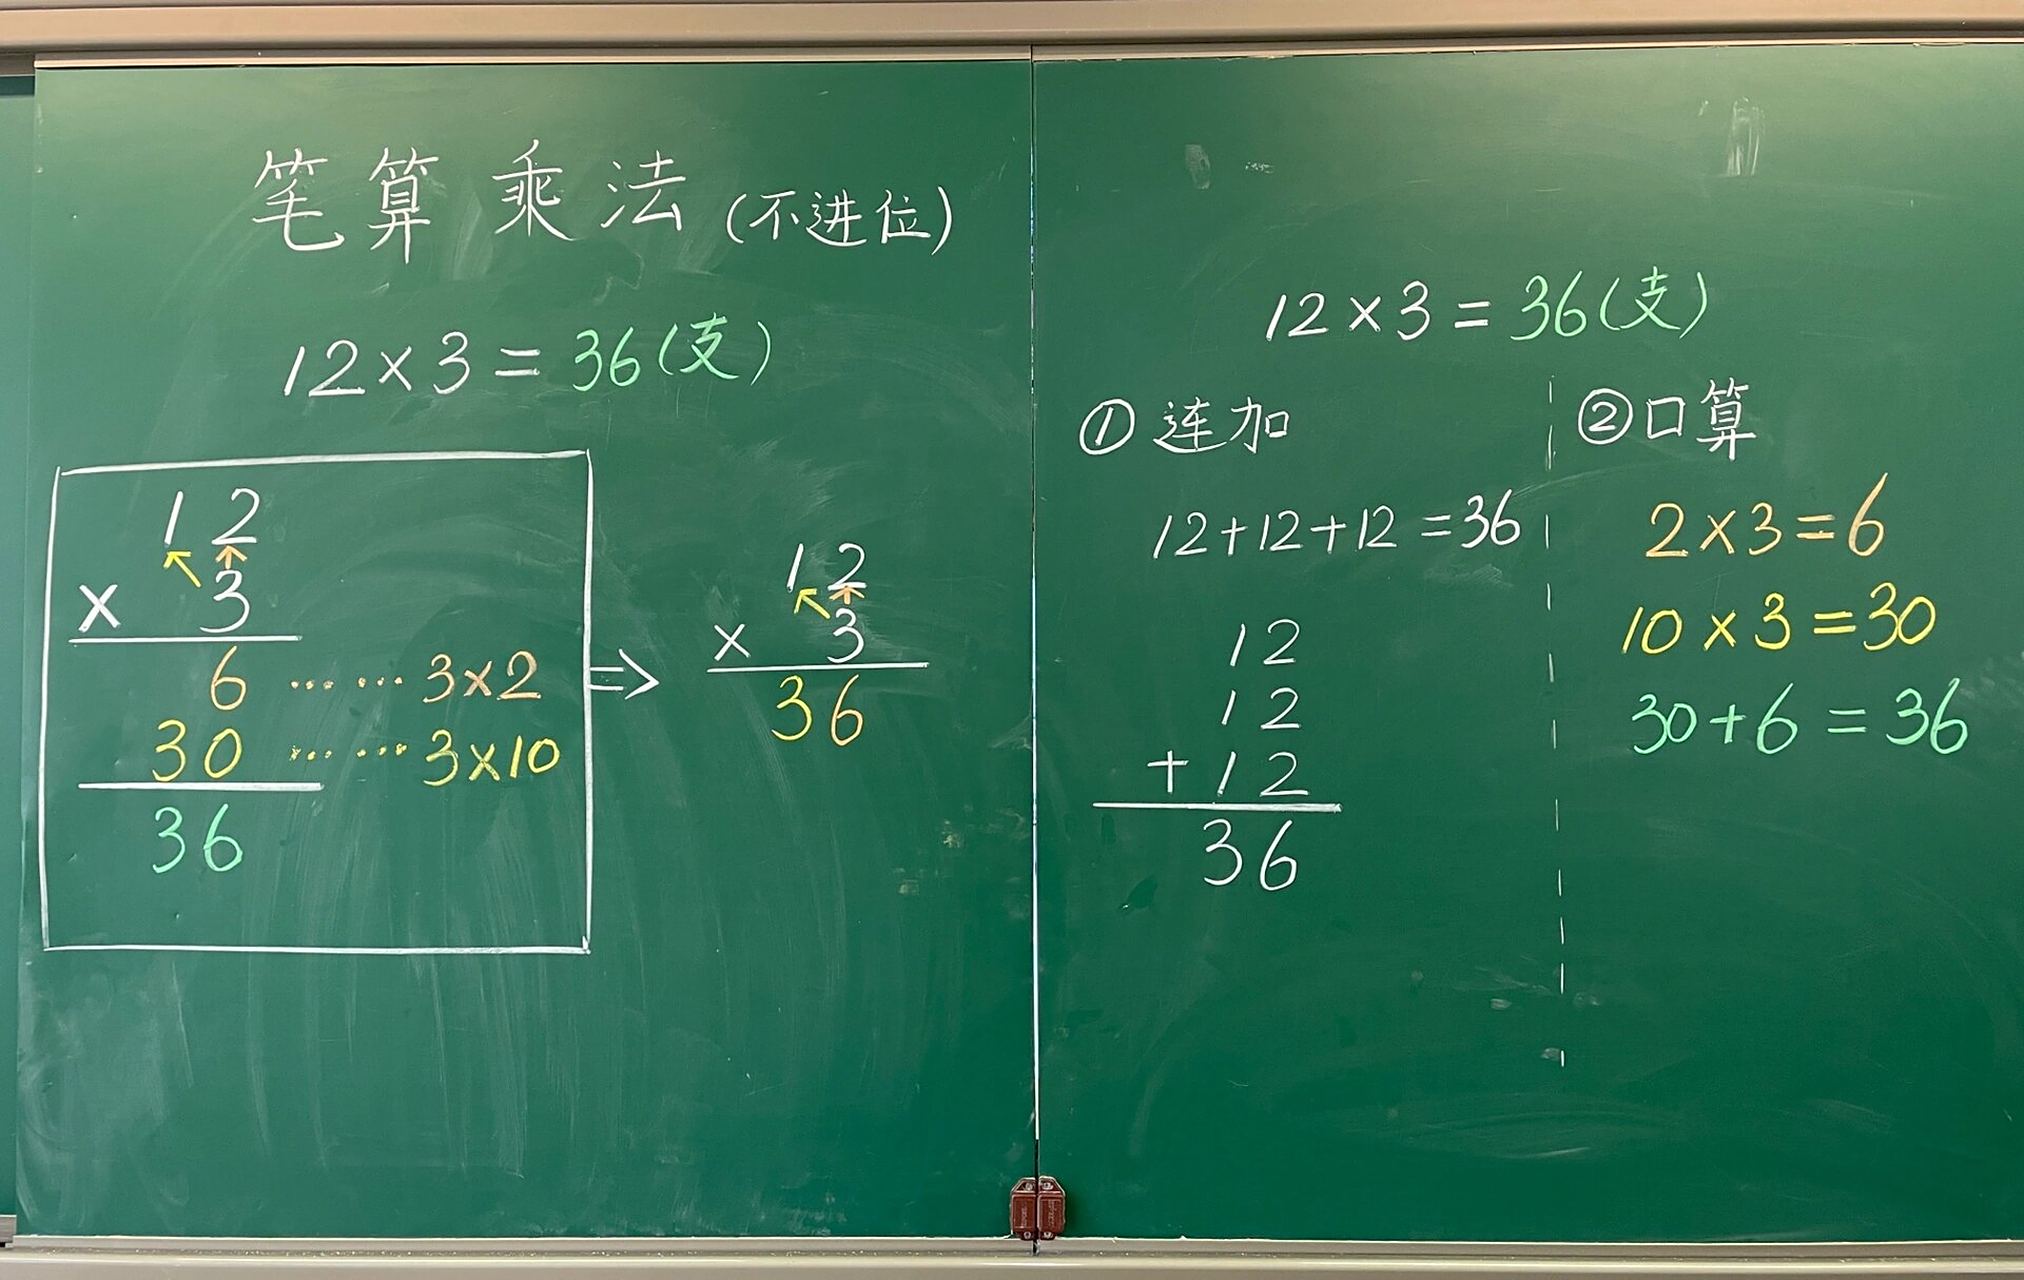 笔算乘法(不进位)
12×3=36(支)
12
× 3
6 …… 3×2
30 …… 3×10
36
⇒
12
× 3
36
12×3=36(支)
①连加
12+12+12=36
12
12
+12
36
②口算
2×3=6
10×3=30
30+6=36